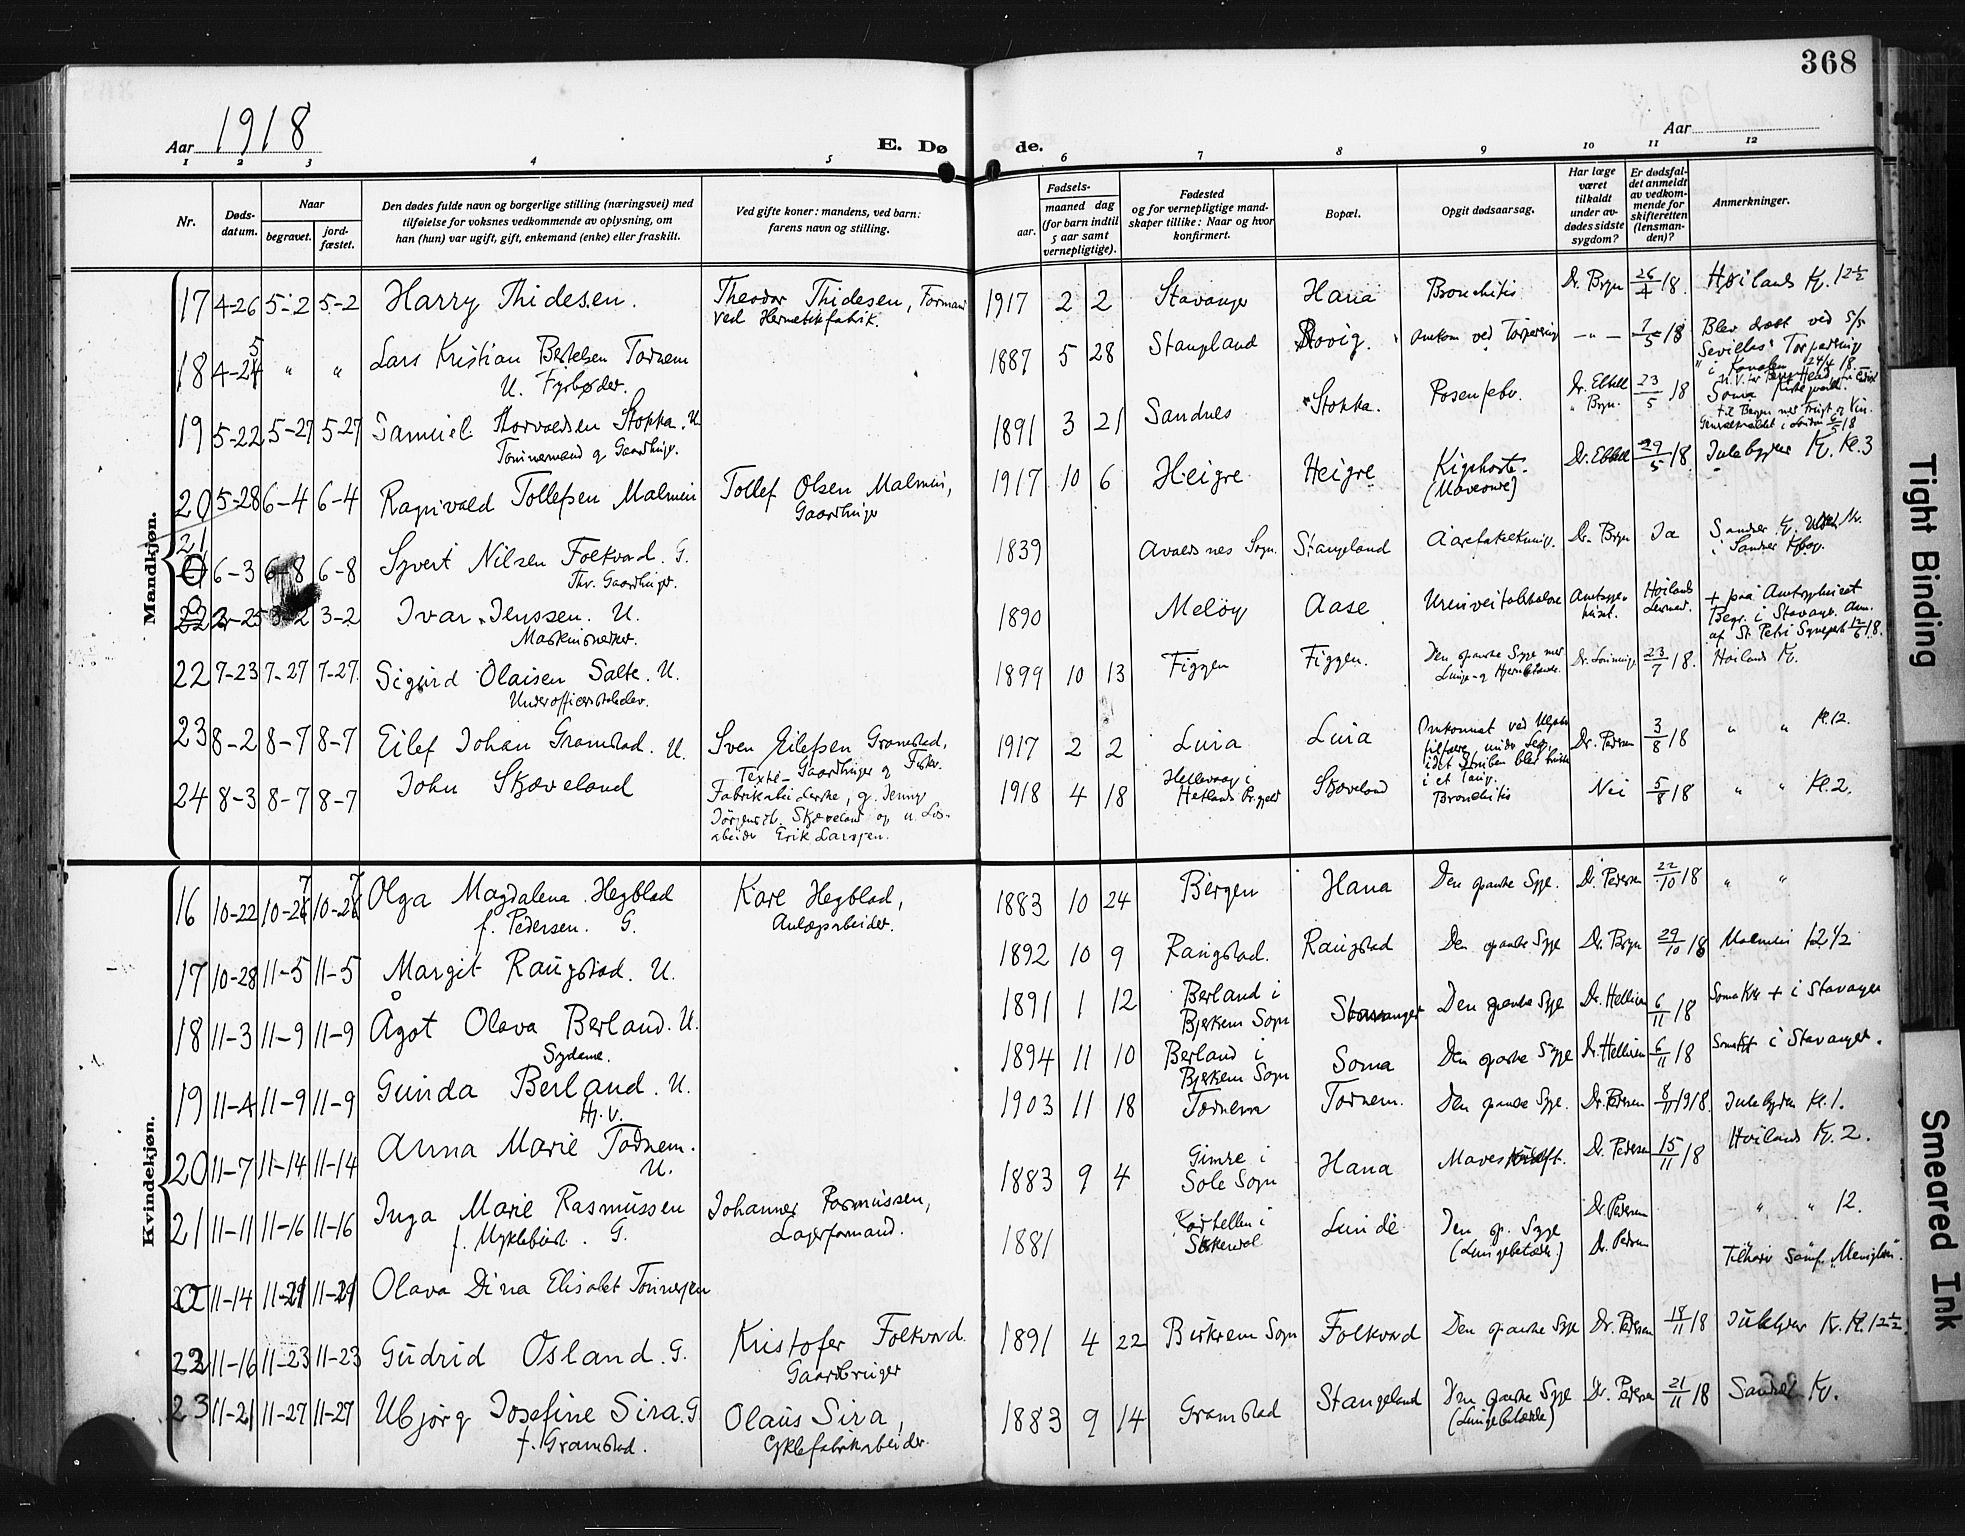 368
Aar 1918
E. Dø
de.
Aar
1 2 3 4 5 6 7 8 9 10 11 12
Nr.
Døds-
datum.
Naar
begravet.
jord-
fæstet.
Den dødes fulde navn og borgerlige stilling (næringsvei) med
tilføielse for voksnes vedkommende av oplysning, om
han (hun) var ugift, gift, enkemand (enke) eller fraskilt.
Ved gifte koner: mandens, ved barn:
farens navn og stilling.
Fødsels-
aar.
maaned dag
(for barn indtil
5 aar samt
vernepligtige).
Fødested
og for vernepligtige mand-
skaper tillike: Naar og hvor
konfirmert.
Bopæl.
Opgit dødsaarsag.
Har læge
været
tilkaldt
under av-
dødes sidste
sygdom?
Er dødsfal-
det anmeldt
av vedkom-
mende for
skifteretten
(lensman-
den)?
Anmerkninger.
Mandkjøn.
17 4-26 5-2 5-2 Harry Thidesen. Theodor Thidesen, Formand
ved Hermetikfabrik.
1917 2 2 Stavanger Hana Bronchitis Dr. Bryn 26/4 18. Høilands K. 12½
18 4-24 " " Lars Kristian Bertelsen Tornem
U. Fyrbøder.
1887 5 28 Stangland Rovig. omkom ved Torpedering -"- 7/5 18 Blev dræbt ved 5/5
Sevillas Torpedering
i Kanalen 24/4 18.
19 5-22 5-27 5-27 Samuel Thorvaldsen Stokka. U
Tømmermand og Gaardbruger.
1891 3 21 Sandnes Stokka. Rosenfeber. Dr. Ebbell
" Bryn. 23/5 18 Soma
20 5-28 6-4 6-4 Ragnvald Tollefsen Malmein Tollef Olsen Malmin,
Gaardbruger
1917 10 6 Heigre Heigre Kighoste. Dr. Ebbell 29/5 18. Julebygden K. Kl. 3
21 6-3 6-8 6-8 Syvert Nilsen Folkvord. G.
Fhv. Gaardbruger.
1839 Avaldsnes Sogn. Stangland Aareforkalkning. Dr. Bryn Ja Sandnes K.
22 2-25 3-2 3-2 Ivar Jenssen. U.
Maskinsnekker.
1890 Meløy Aase Høilands
Lensmd. + paa Amtssykehuset
Begr. i Stavanger. Anm.
af St. Petri Sognepr 12/6 18.
22 7-23 7-27 7-27. Sigurd Olaisen Salte. U.
Underofficerselev.
1899 10 13 Figgen Figgen. Den spanske Syge med
Lunge- og Hjernebetændelse. 23/7 18. Høilands K.
23 8-2 8-7 8-7 Eilef Johan Gramstad. U. Sven Eilefsen Gramstad,
Gaardbruger og
1917 2 2 Lura Lura Omkommet ved Ulykkes
tilfælde, under Leg,
i et Taug. Dr. Pedersen 3/8 18 " " Kl. 12.
24 8-3 8-7 8-7 John Skjæveland Fabrikarbeiderske, g. Jenny
Jørgensd. Skjæveland og u. Løs-
arbeider Erik Larssen.
1918 4 18 Skjæveland Bronchitis Nei 5/8 18 " " Kl. 2.
Kvindekjøn.
16 10-22 10-27 10-27 Olga Magdalena Hegblad
f. Pedersen. G. Kare Hegblad,
Anlægsarbeider.
1883 10 24 Bergen Hana Den spanske Syge. Dr. Pedersen 22/10 18 " "
17 10-28 11-5 11-5 Margit Raugstad. U.
1892 10 9 Raugstad. Raugstad Den spanske Syge Dr. Bryn 29/10 18 Malmein 12 1/2
18 11-3 11-9 11-9 Ågot Olava Berland. U.
Sydame.
1891 1 12 Berland i
Bjerkem Sogn Stavanger Den spanske Syge Dr. Hellisen 6/11 18 Soma K. + i Stavanger
19 11-4 11-9 11-9 Gunda Berland. U.
Hj. v.
1894 11 10 Berland i
Bjerkem Sogn Soma Den spanske Syge Dr. Hellisen 6/11 18 Soma K. + i Stavanger.
20 11-7 11-14 11-14 Anna Marie Tornem.
U.
1903 11 18 Tornem Tornem. Den spanske Syge. Dr. Pedersen 8/11 1918. Julebygden Kl. 1.
21 11-11 11-16 11-16 Inga Marie Rasmussen
f. Myklebust. G. Johannes Rasmussen,
Lagerformand.
1883 9 4 Gimre i
Sole Sogn Hana Mavekræft. Dr. Pedersen 15/11 18 Høilands K. 2.
11-14 11-21 11-21 Olava Dina Elisabet Tønnesen
1881 Lunde Den sp. Syge
(Lungebetænd.) Dr. Pedersen " " 12.
22 11-16 11-23 11-23 Gudrid Osland. G. Kristofer Folkvord.
Gaardbruger
1891 4 22 Birkrem Sogn Folkvord Den spanske Syge Dr. Pedersen 18/11 18 Julebygden K. Kl. 12½.
23 11-21 11-27 11-27 Ubjørg Josefine Sira. G.
f. Gramstad. Olaus Sira,
Cyklefabrikarbeider.
1883 9 14 Gramstad Stangeland Den spanske Syge
(Lungebetænde) Dr. Pedersen 21/11 18 Sandnes K.
Tight Binding
Smeared Ink